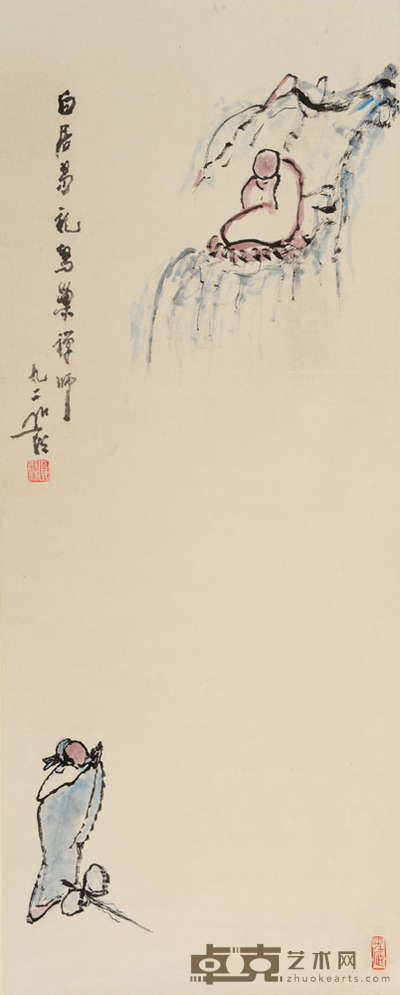 白居易礼鸟巢禅师
九二
卓克艺术网
www.zhuokearts.com